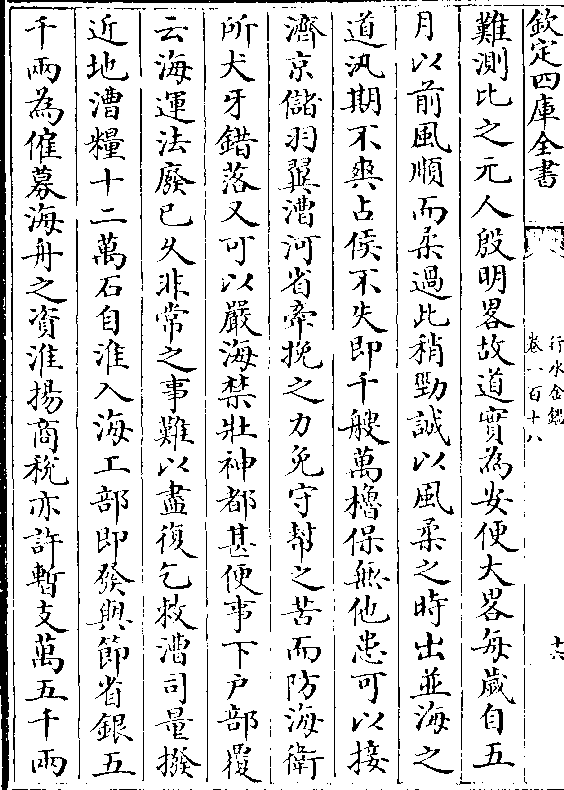 欽定四庫全書
行水金鑑
卷一百十八
十六
難測比之元人殷明畧故道實為安便大畧每嵗自五
月以前風順而柔過此稍勁誠以風柔之時出並海之
道汎期不爽占侯不失即千艘萬櫓保無他患可以接
濟京儲羽翼漕河省牽挽之力免守幫之苦而防海衛
所犬牙錯落又可以嚴海禁壯神都甚便事下户部覆
云海運法廢已久非常之事難以盡復乞敕漕司量撥
近地漕糧十二萬石自淮入海工部即發與節省銀五
千兩為僱募海舟之資淮揚商税亦許暫支萬五千兩